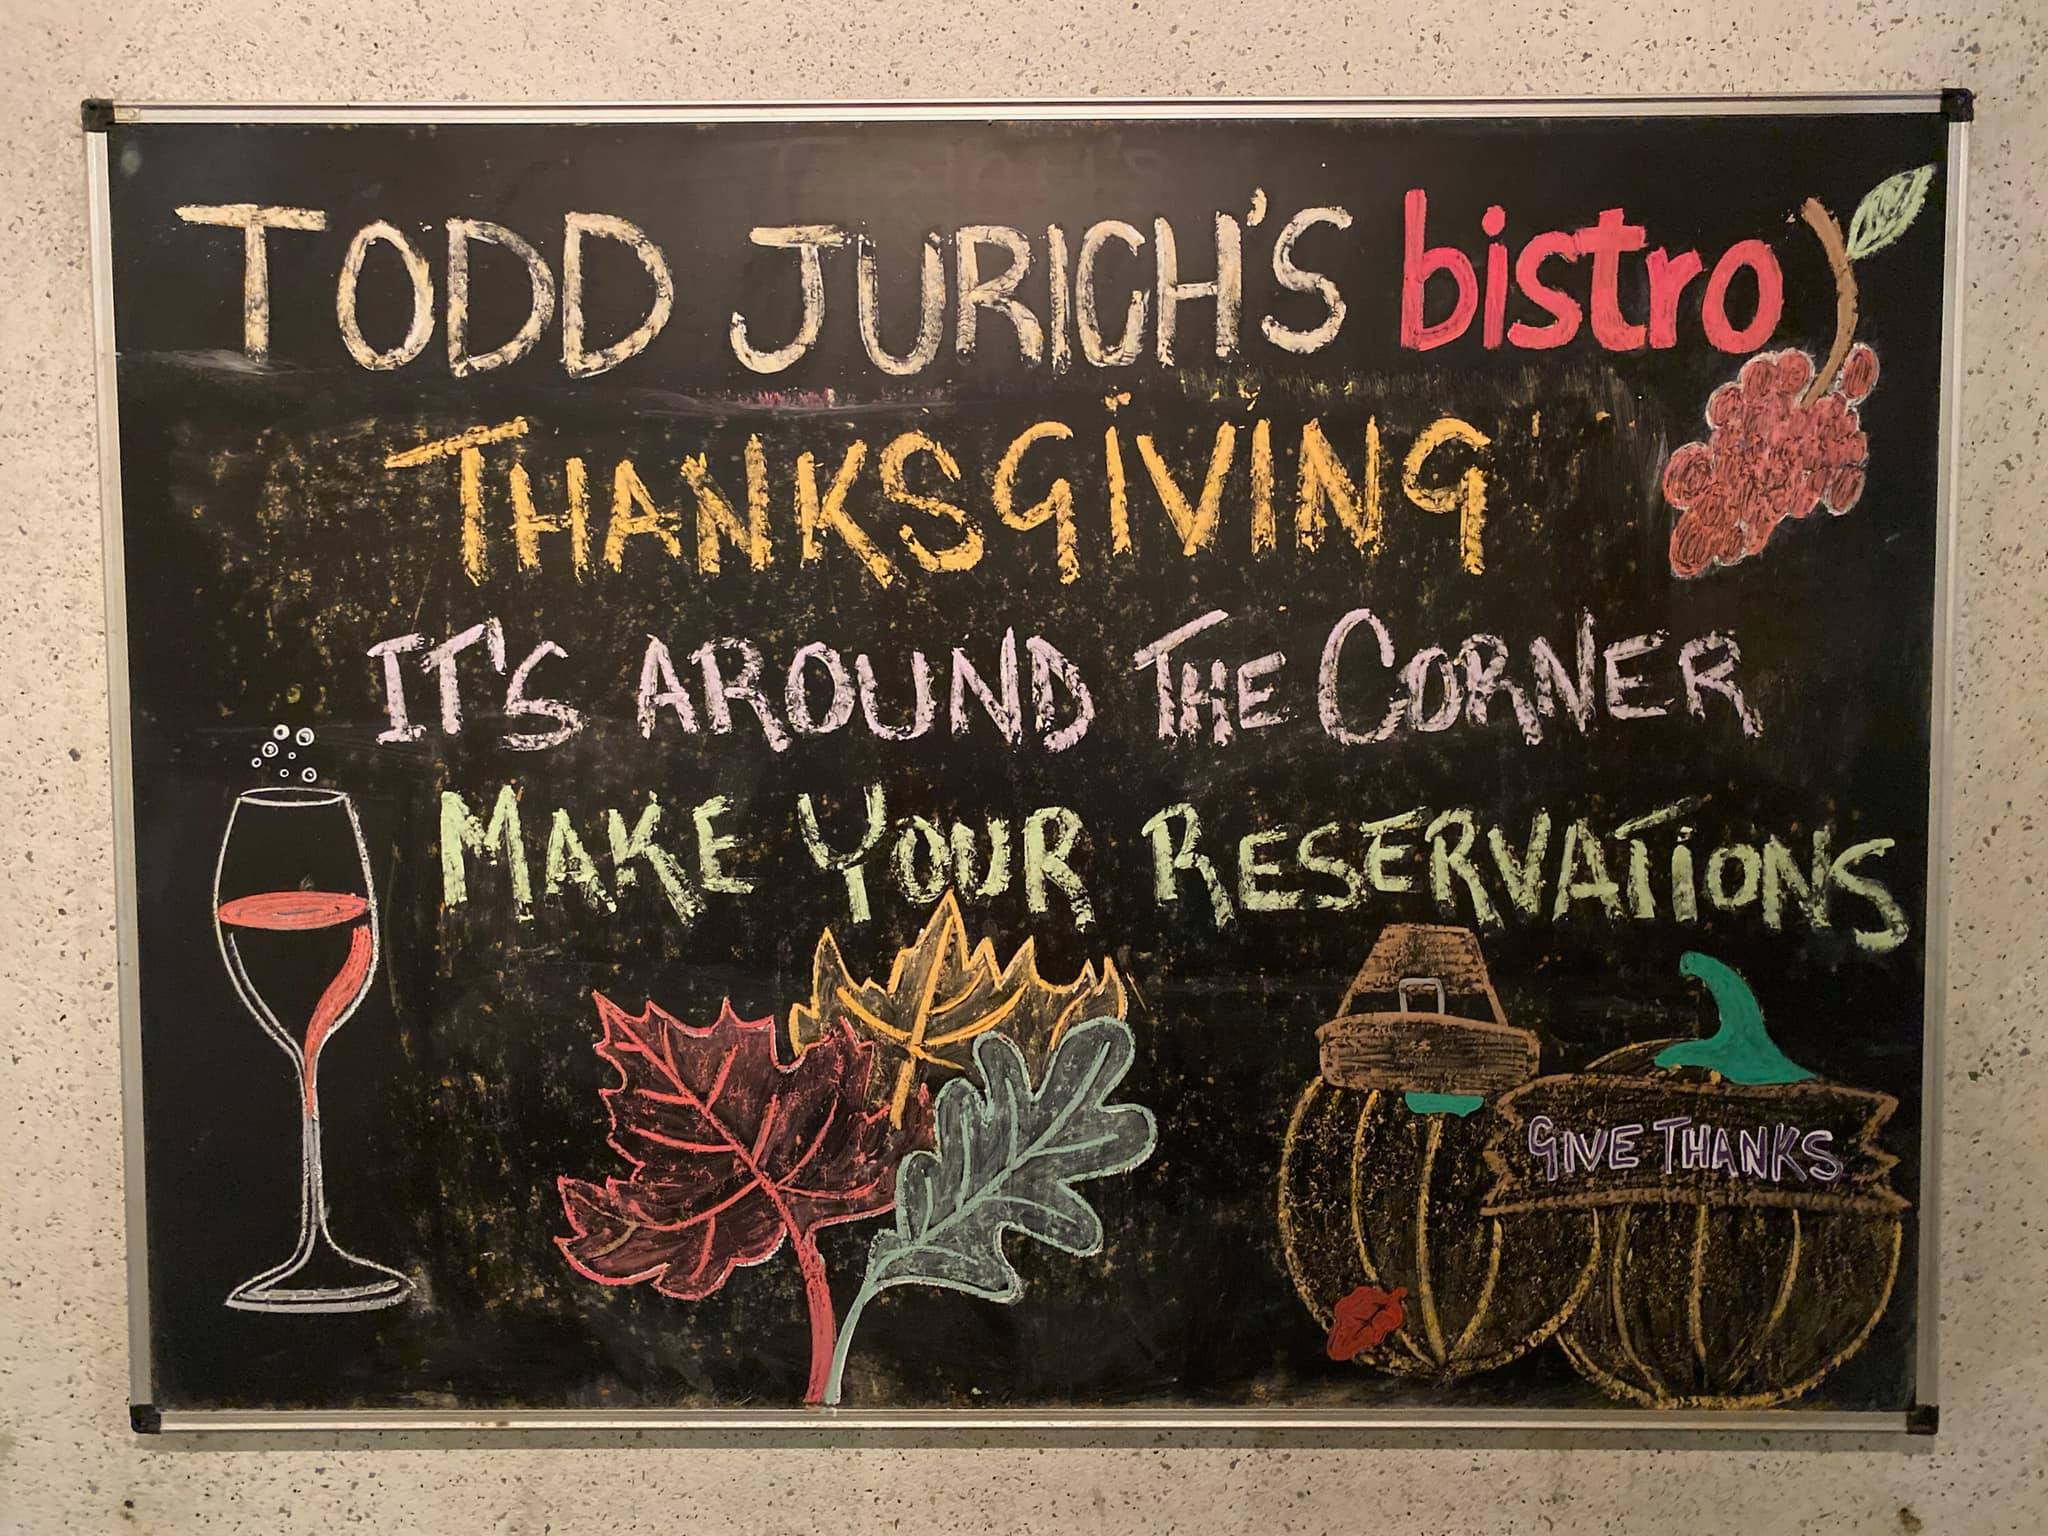 TODD JURICH'S bistro
THANKSGIVING
IT'S AROUND THE CORNER
MAKE YOUR RESERVATIONS
GIVE THANKS